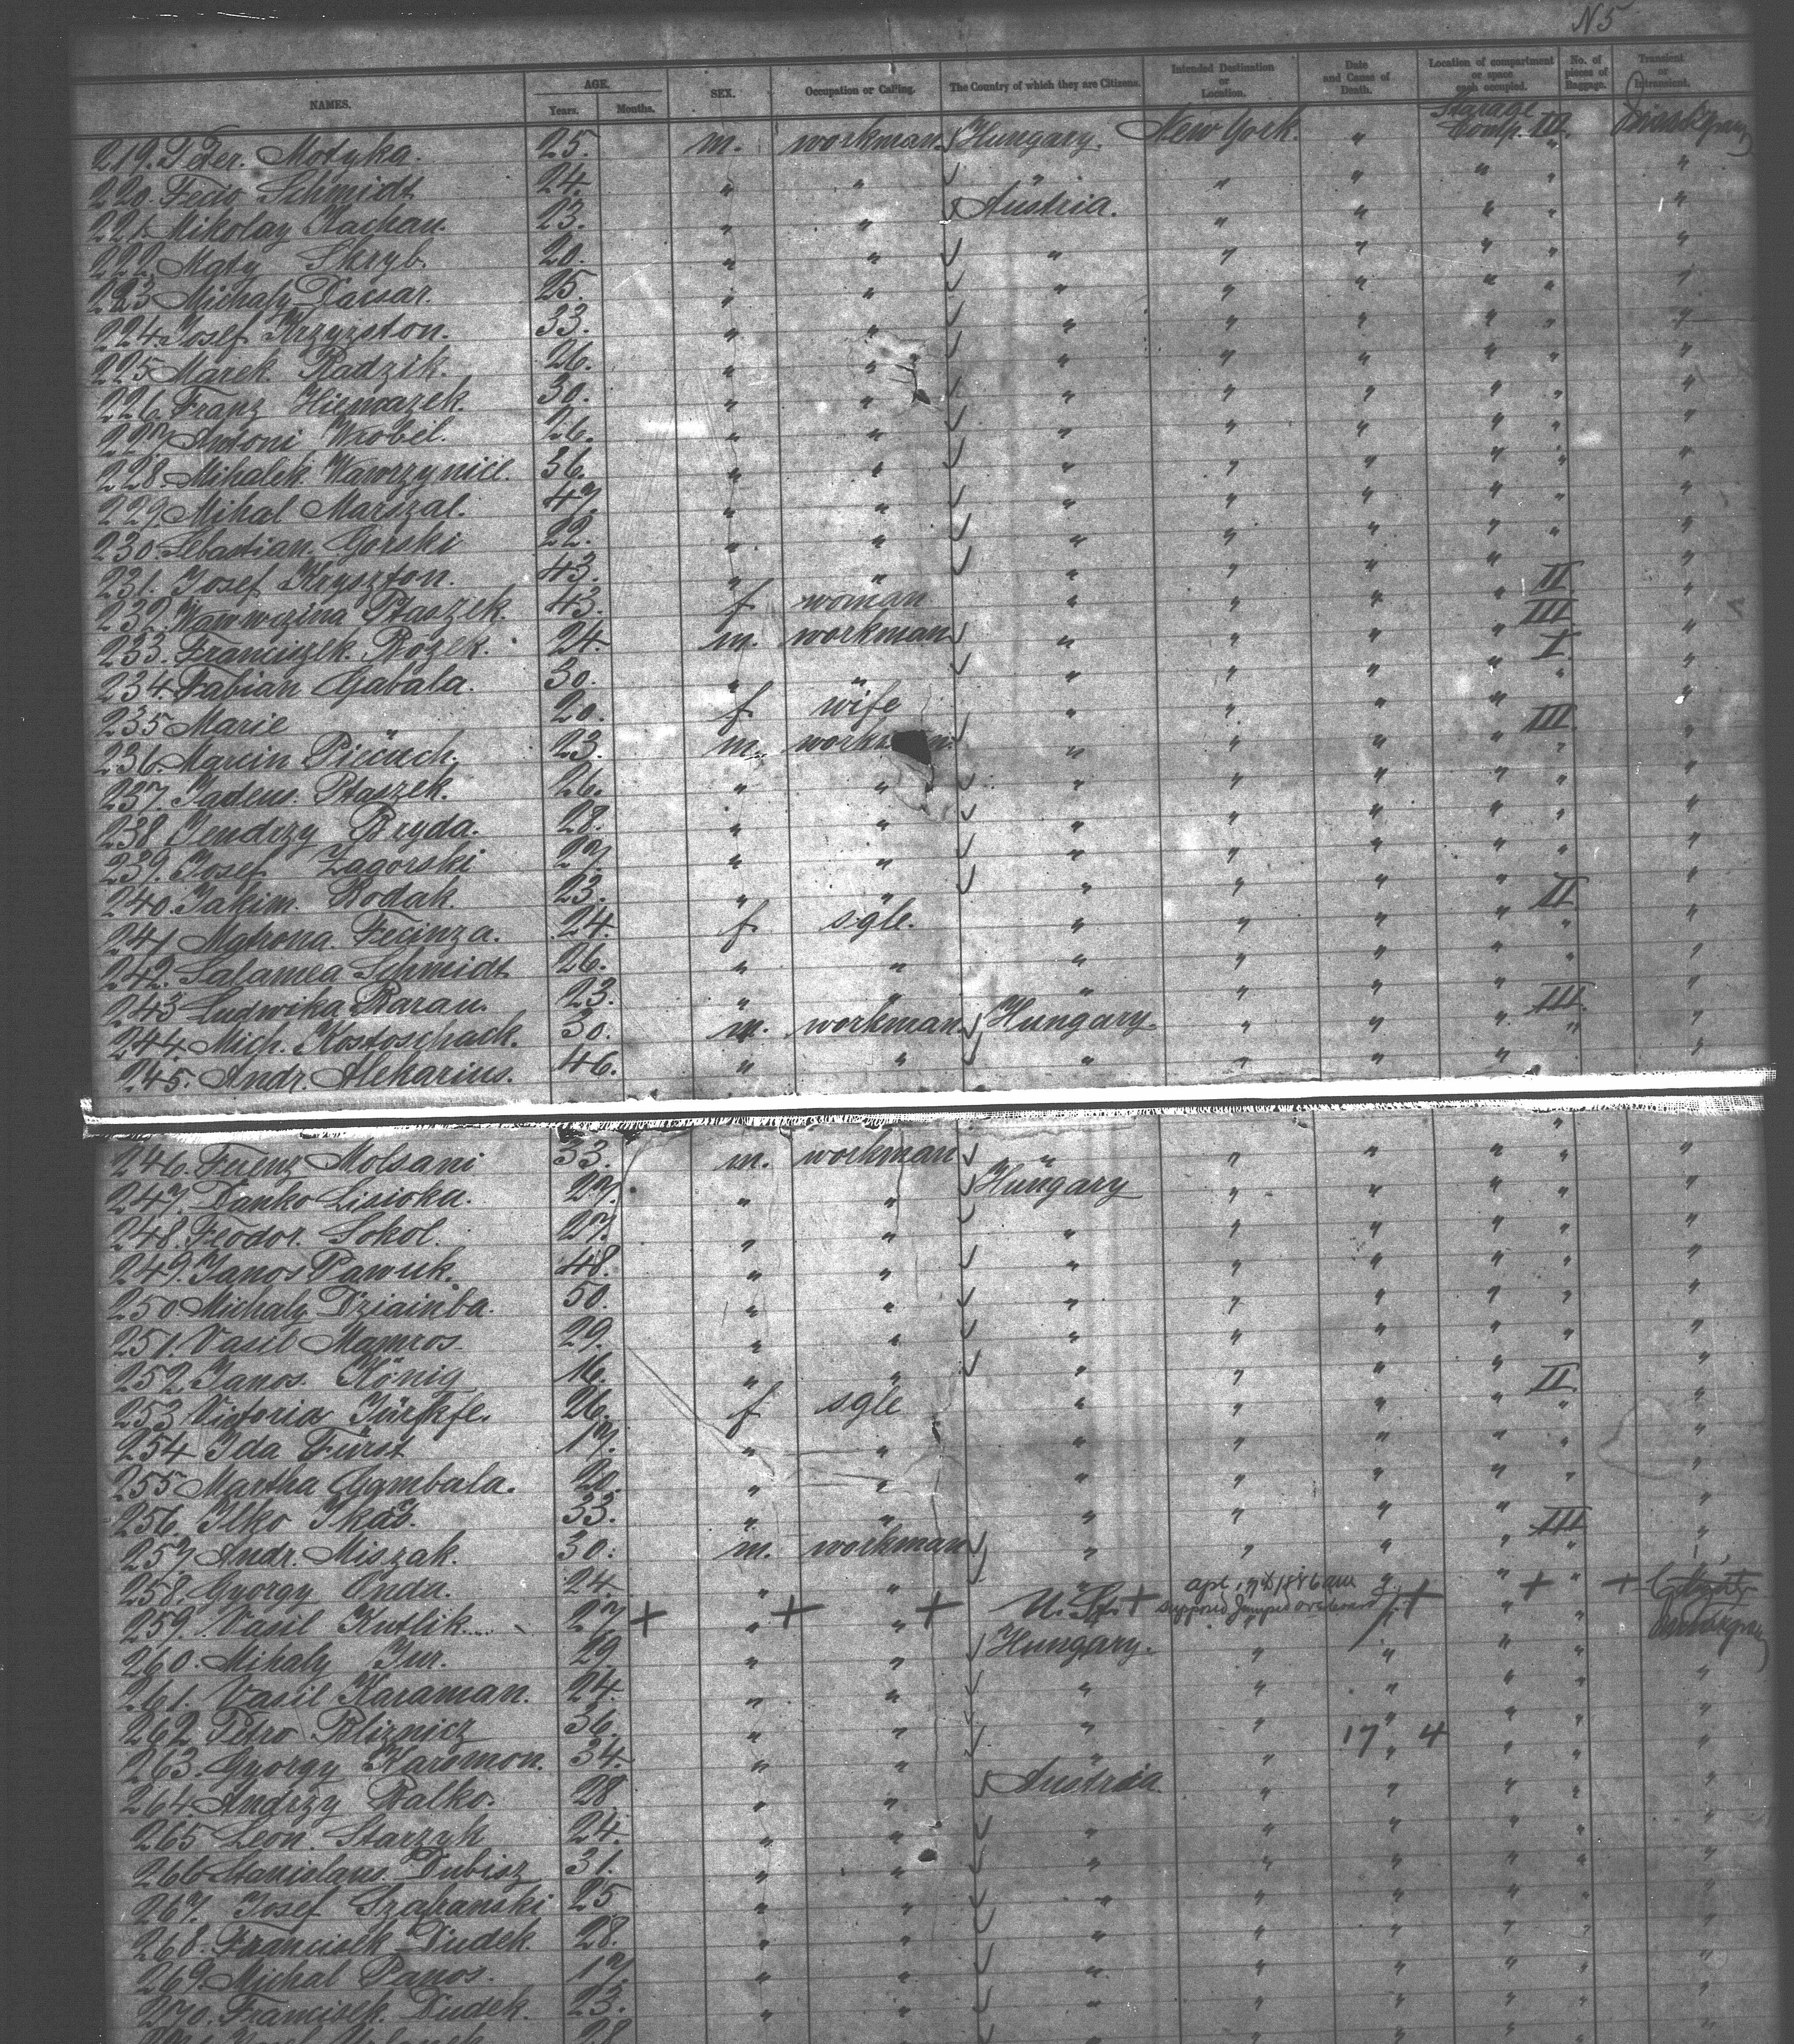 N 5
NAMES. AGE. Years. Months. SEX. Occupation or Calling. The Country of which they are Citizens. Intended Destination or Location. Date and Cause of Death. Location of compartment or space each occupied. No. of pieces of Baggage. Transient or Intransient.
219. Peter. Motyka. 25. m. workman. Hungary. New York. " Starage Comp. III.
220. Fecio Schmidt 24. " " " " " " " "
221 Mikolay Kachan. 23. " " Austria. " " " " "
222. Maty Skryb. 20. " " " " " " " "
223 Michaly Dacsar. 25. " " " " " " " "
224. Josef Krzyzston. 33. " " " " " " " "
225 Marek. Radzik. 26. " " " " " " " "
226. Franz 30. " " " " " " " "
227 Antoni Wrobel. 26. " " " " " " " "
228. Mihalek. Wawrzynice. 36. " " " " " " " "
229. Mihal Marszal. 47. " " " " " " " "
230. Sebastian. Gorski 22. " " " " " " " "
231. Josef Kryszton. 43. " " " " " " " "
232. Wawwczina Ptaszek. 43. f woman " " " " II "
233. Franciszek. Rozek. 24. m. workman " " " " III "
234. Fabian Gabala. 30. " " " " " " I. "
235 Marie 20. f wife " " " " " "
236. Marcin Pieciuch. 23. m. workman. " " " " III. "
237. Tadeus. Ptaszek. 26. " " " " " " " "
238 Jendrzy Bryda. 28. " " " " " " " "
239. Josef Zagorski 27 " " " " " " " "
240. Jakim. Rodak. 23. " " " " " " " "
241 Mahona Fecinza. 24. f sgle. " " " " II "
242. Salamea Schmidt 26. " " " " " " " "
243 Ludwika Barau. 23. " " " " " " " "
244. Mich. Kostoschack. 30. m. workman. Hungary. " " " III "
245. Andr. Alekarius. 46. " " " " " " " "
246. Ferenz Molsani 33. m. workman " " " " " "
247. Danko Lisioka. 27. " " Hungary " " " " "
248. Feodor. Sokol. 27. " " " " " " " "
249. Janos Pawuk. 48. " " " " " " " "
250. Michaly Dziainba. 50. " " " " " " " "
251. Vasil Mamros. 29. " " " " " " " "
252. Janos. König 16. " " " " " " " "
253 Victoria 26. f sgle " " " " II "
254 Ida Fürst 17. " " " " " " " "
255 Martha Gambala. 20. " " " " " " " "
256. Ilko 33. " " " " " " " "
257. Andr. Miszak. 30. m. workman " " " " III "
258. Gyorgy Onda. 24. " " " " " "
259. Vasil Kutlik. 27 + " + " + U. St. + supposed jumped overboard + " + " +
260. Mihaly Jur. 29 " " Hungary. " " " "
261. Vasil Karaman. 24. " " " " " " " "
262 Petro Bliznicz 36. " " " " " " " "
263. Gyorgy Haromon. 34. " " " " 17 " 4 " " "
264 Andrzy Balko. 28 " " Austria " " " " "
265 Leon. Starzyk 24. " " " " " " " "
266 Stanislaus. Dubisz 31. " " " " " " " "
267. Josef Szabanski 25 " " " " " " " "
268. Francisek Dudek. 28. " " " " " " " "
269 Michal Panos. 17. " " " " " " " "
270. Francisek. Dudek. 23. " " " " " " " "
28